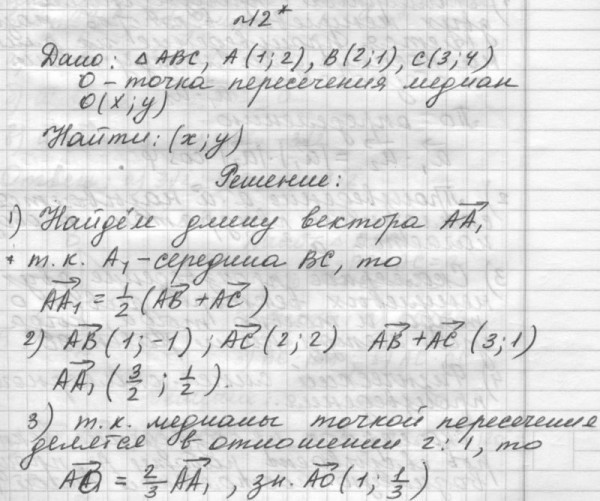 №12*
Дано: △ABC, A(1;2), B(2;1), C(3;4)
O - точка пересечения медиан
O(x;y)
Найти: (x;y)
Решение:
1) Найдём длину вектора AA₁
т.к. A₁ - середина BC, то
AA₁ = 1/2 (AB + AC)
2) AB(1;-1); AC(2;2) AB + AC (3;1)
AA₁ (3/2 ; 1/2).
3) т.к. медианы точкой пересечение
делятся в отношении 2:1, то
AO = 2/3 AA₁, зн. AO (1; 1/3)